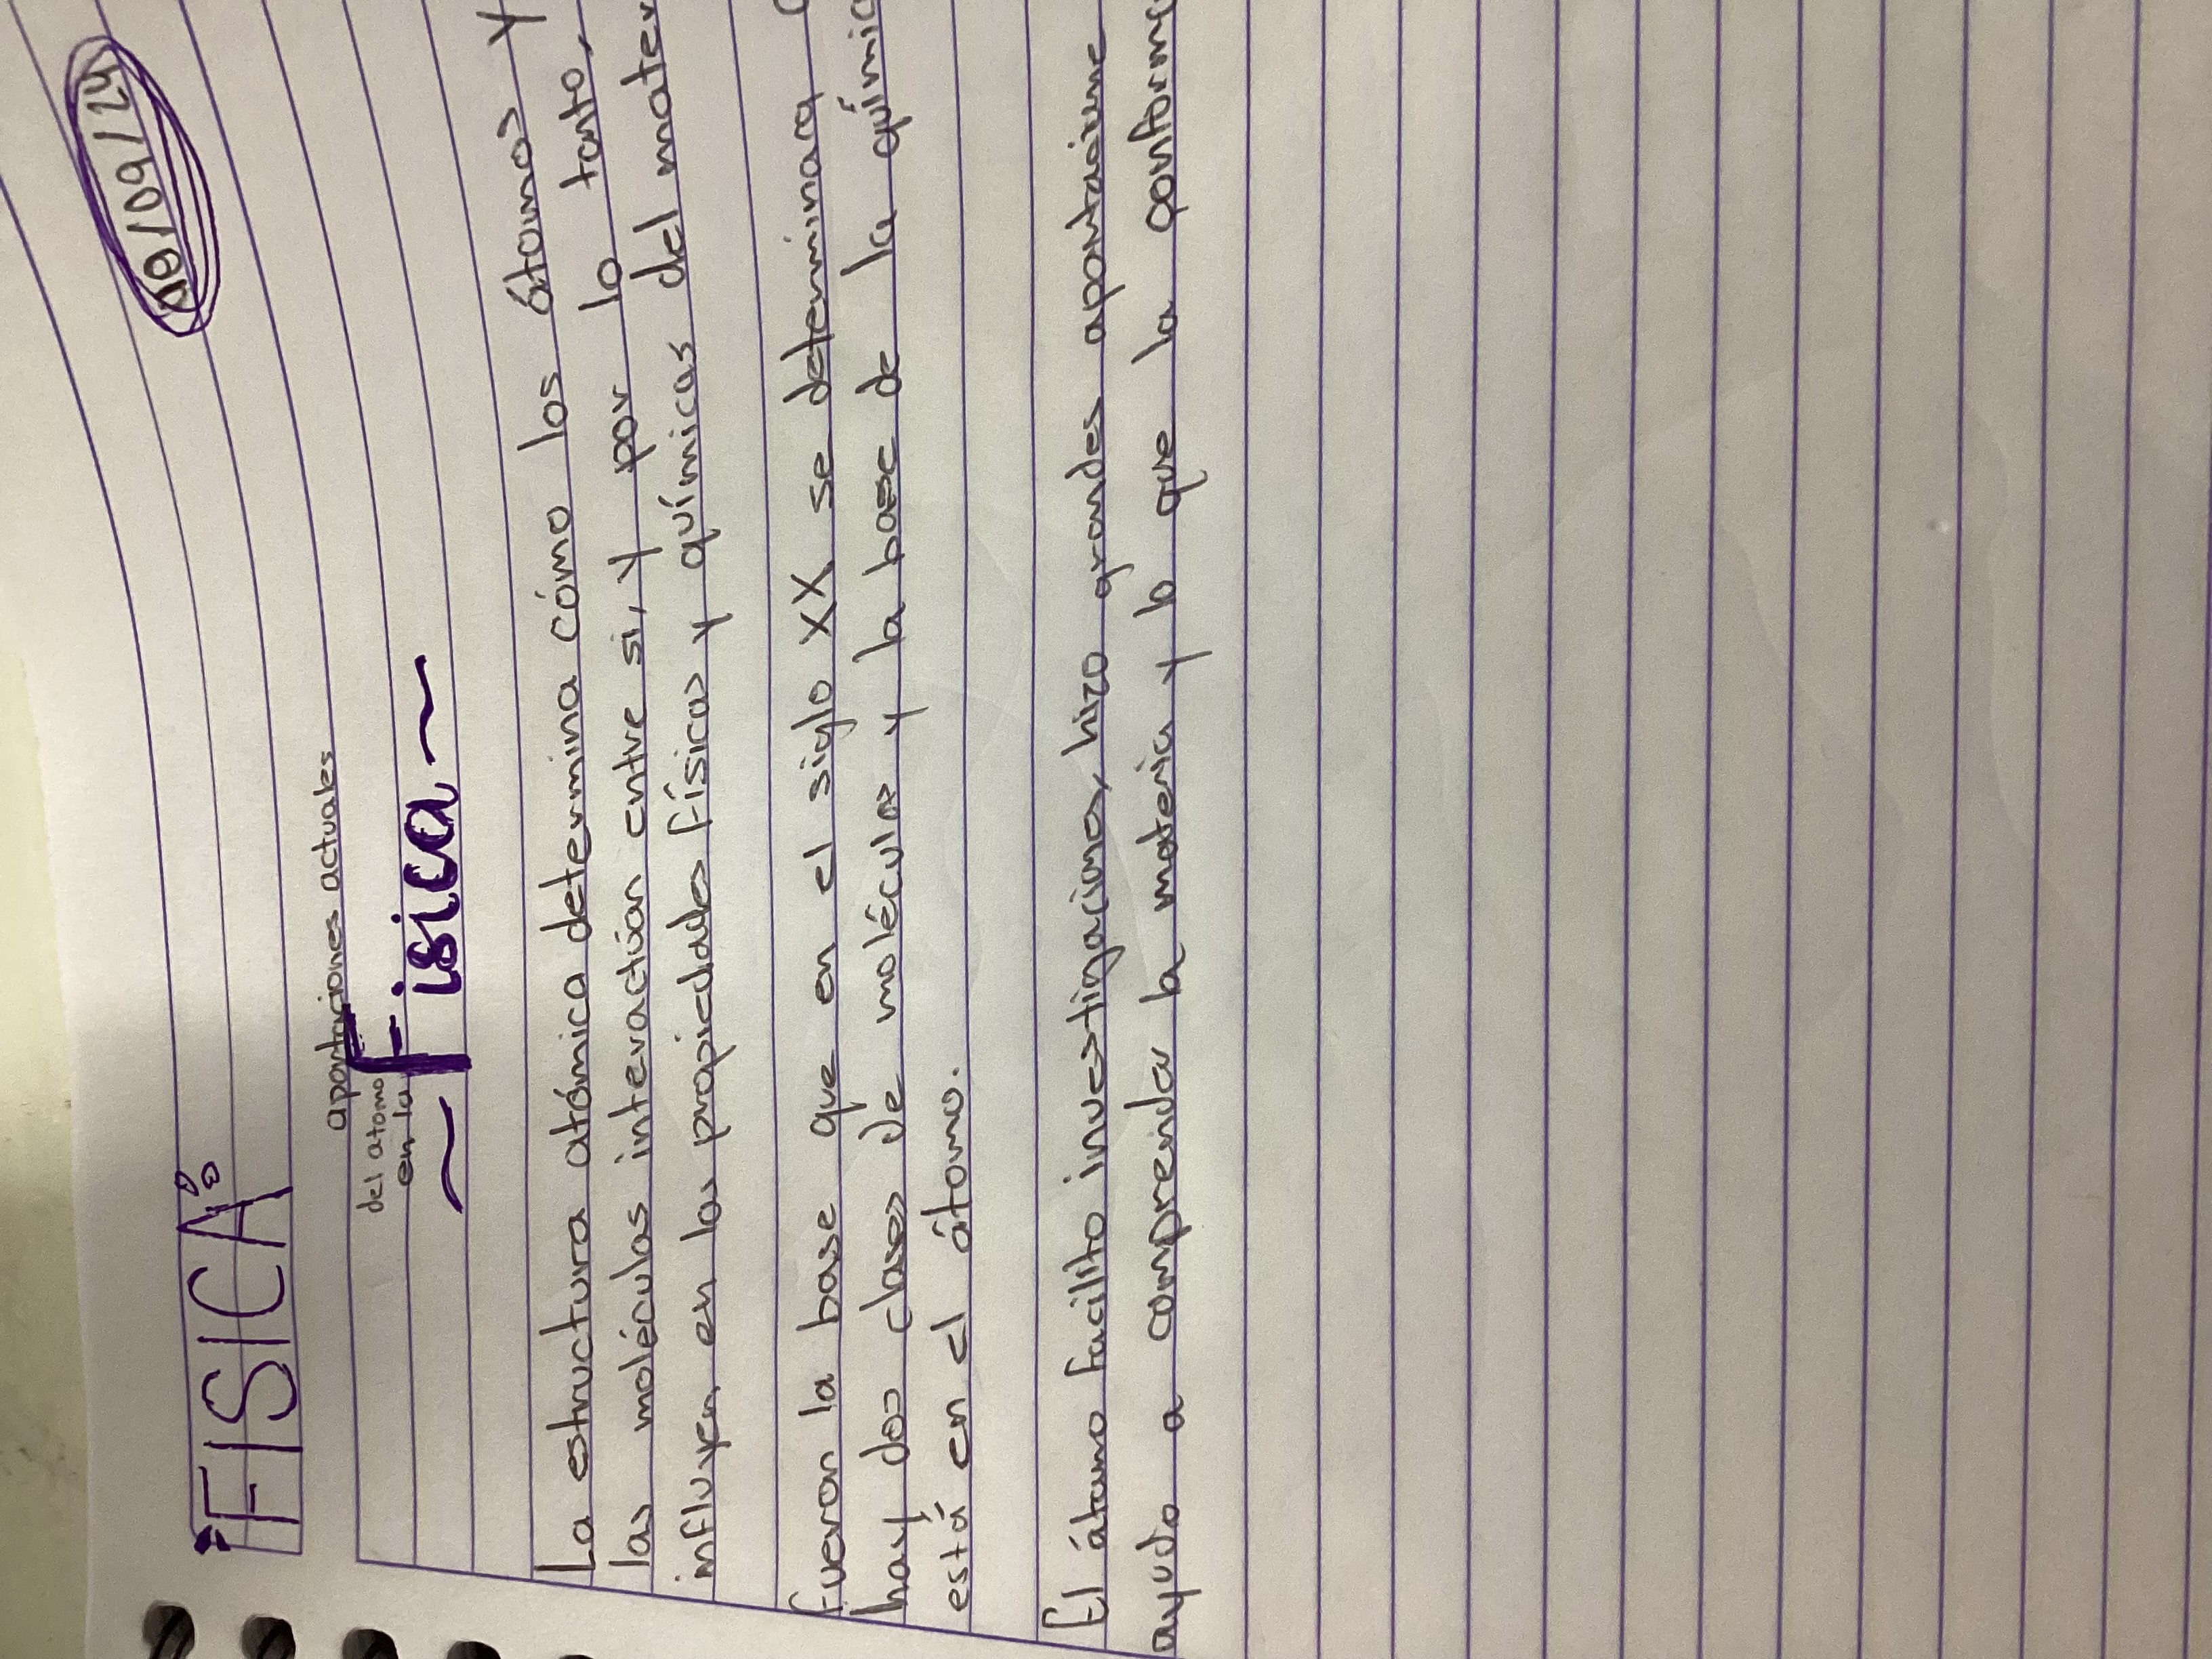 10/09/24
FISICA
aportaciones actuales
del atomo
en la
~ Fisica ~
La estructura atómica determina cómo los átomos y
las moléculas interactúan entre si, y por lo tanto,
influyen en las propiedades físicas y químicas del mater
Fueron la base que en el siglo XX se determinara
hay dos clases de moléculas y la base de la químic
está en el átomo.
El átomo facilito investigaciones, hizo grandes aportacione
ayudo a comprender la materia y lo que la conforma